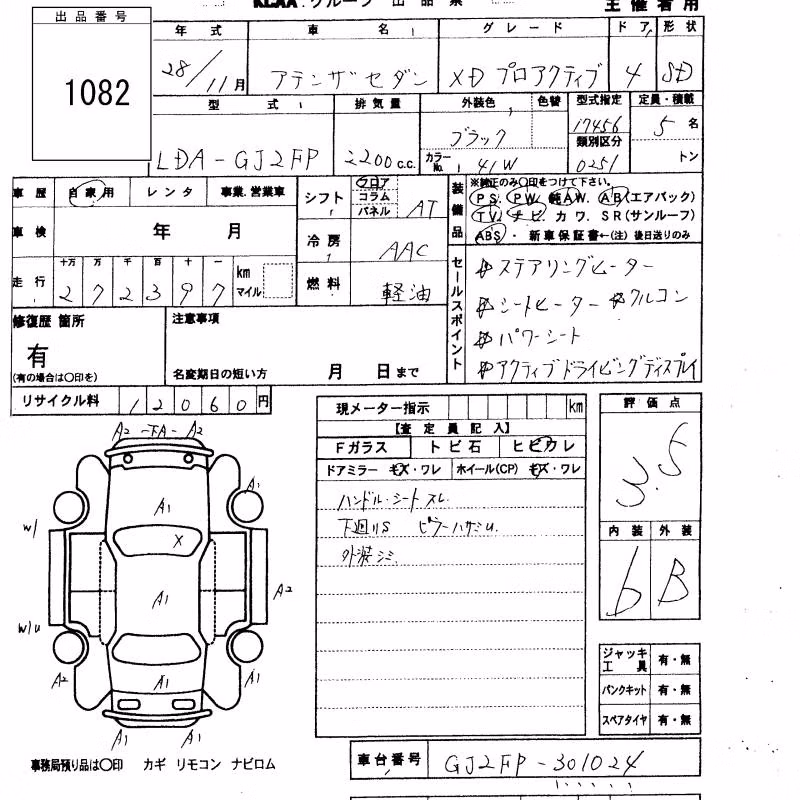 KCAA グループ 出品票 主催者用
出品番号
1082
年式 車名 グレード ドア 形状
28/11月 アテンザセダン XD プロアクティブ 4 SD
型式 排気量 外装色 色替 型式指定 定員・積載
LDA-GJ2FP 2200c.c. ブラック 17456 5名
カラーNo. 41W 類別区分 0251 トン
車歴 自家用 レンタ 事業.営業車
シフト フロア コラム パネル AT
装備品 ※純正のみ〇印をつけて下さい。
PS. PW. 純AW. AB(エアバック)
TV. ナビ カワ. SR(サンルーフ)
ABS・新車保証書←(注) 後日送りのみ
車検 年 月
冷房 AAC
走行 十万 万 千 百 十 一 km マイル
2 7 2 3 9 7
燃料 軽油
セールスポイント
ステアリングヒーター
シートヒーター クルコン
パワーシート
アクティブドライビングディスプレイ
修復歴 箇所
有
(有の場合は〇印を)
注意事項
名変期日の短い方 月 日まで
リサイクル料 12060円
現メーター指示 km
【査定員記入】
Fガラス トビ石 ヒビワレ
ドアミラー キズ・ワレ ホイール(CP) キズ・ワレ
ハンドル・シートスレ
下廻りS ピラーハサミU.
外装シミ
評価点
3.5
内装 外装
6 B
A2 -下A- A2
A1
A1
W/
X
A1
A2
W/U
A2
A1
A1
A1
A1
ジャッキ工具 有・無
パンクキット 有・無
スペアタイヤ 有・無
事務局預り品は〇印 カギ リモコン ナビロム
車台番号 GJ2FP-301024